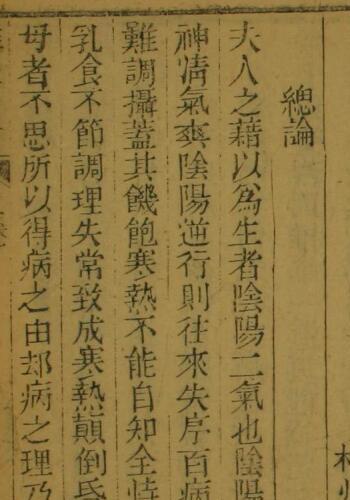 總論
夫人之藉以為生者陰陽二氣也陰陽
神清氣爽陰陽逆行則往來失序百病
難調攝蓋其饑飽寒熱不能自知全恃
乳食不節調理失常致成寒熱顛倒昏
母者不思所以得病之由却病之理乃